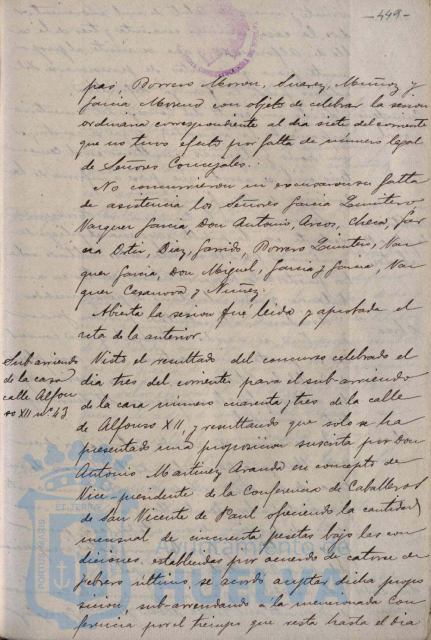 -449-
pas, Borrero Moron, Suarez, Muñoz y
Garcia Moreno con objeto de celebrar la sesion
ordinaria correspondiente al dia siete del corriente
que no tuvo efecto por falta de número legal
de Señores Concejales.
No concurrieron ni excusaron su falta
de asistencia los Señores Garcia Quintero
Vazquez Garcia, Don Antonio, Arcos, Checa, Gar
cia Ortiz, Diaz, Garrido, Borrero Quintin, Vaz
quez Garcia, Don Miguel, Garcia y Garcia, Vaz
quez Casanova y Nuñez.
Abierta la sesion fué leida y aprobada el
acta de la anterior.
Subarriendo
de la casa
calle Alfon
so XII nº 43
Visto el resultado del concurso celebrado el
dia tres del corriente para el subarriendo
de la casa número cuarenta y tres de la calle
de Alfonso XII, y resultando que solo se ha
presentado una proposicion suscrita por Don
Antonio Martinez Aranda en concepto de
Vice-presidente de la Conferencia de Caballeros
de San Vicente de Paul ofreciendo la cantidad
mensual de cincuenta pesetas bajo las con
diciones establecidas por acuerdo de catorce de
febrero último, se acordó aceptar dicha propo
sicion, subarrendando a la mencionada Con
ferencia por el tiempo que resta hasta el dia
PORTUS MARIS
ET TERRAE
Ayuntamiento de
HUELVA